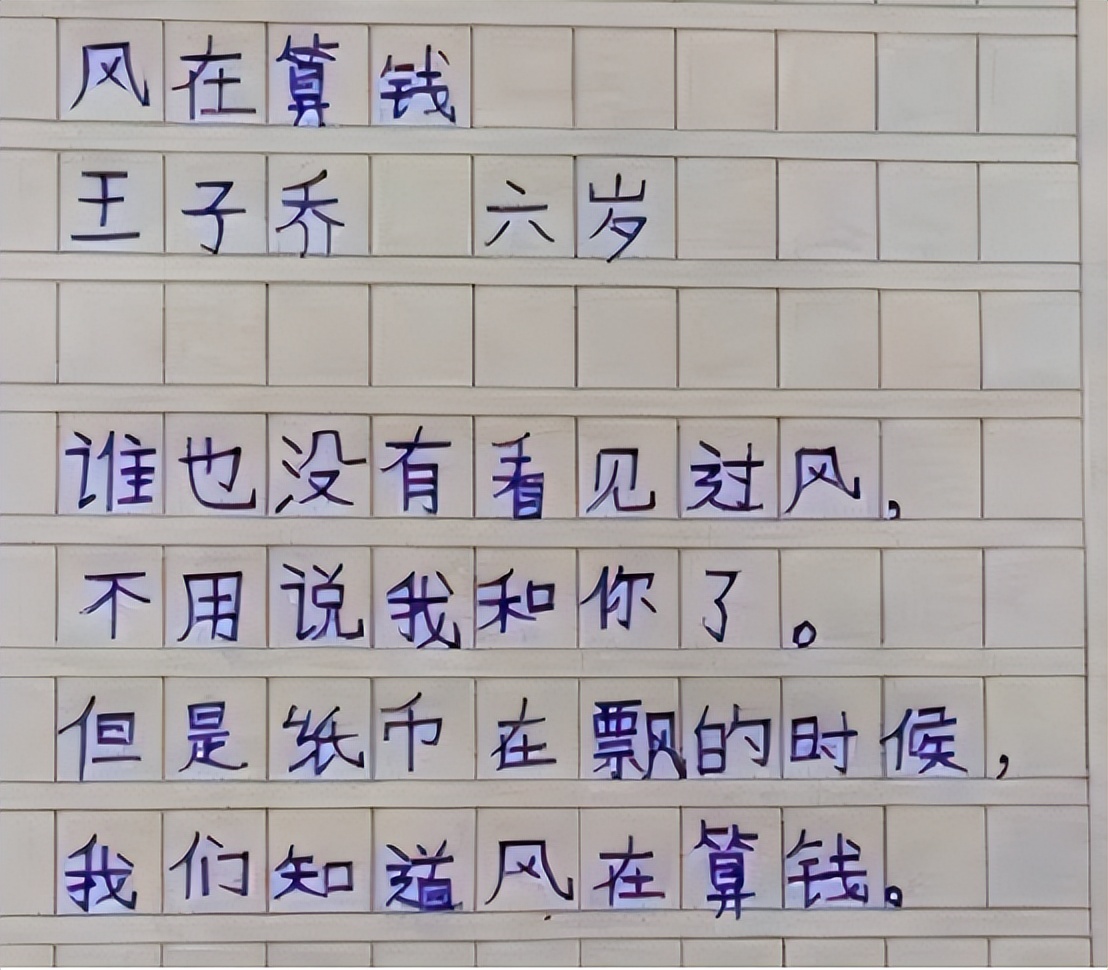 风在算钱
王子乔 六岁
谁也没有看见过风，
不用说我和你了。
但是纸币在飘的时候，
我们知道风在算钱。